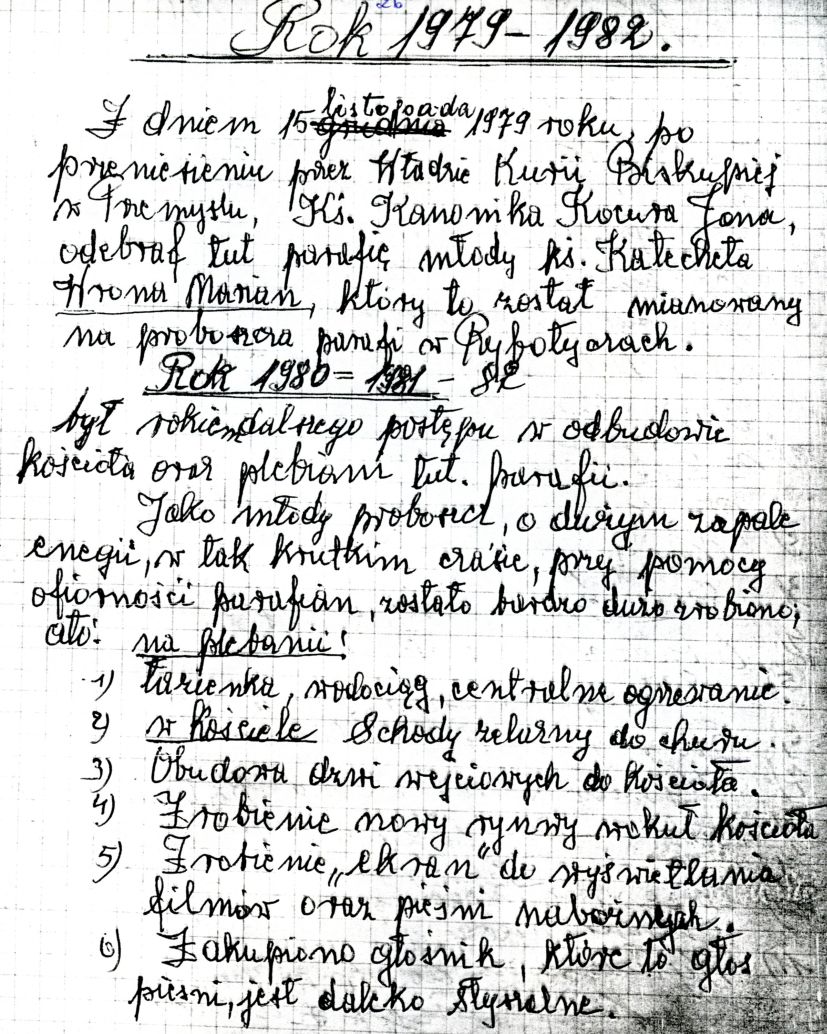 26
Rok 1979 – 1982.
Z dniem 15 listopada 1979 roku, po
przeniesieniu przez Władzie Kurii Biskupiej
w Przemyślu, Ks. Kanonika Kocura Jana,
odebraf tut parafię młody ks. Katecheta
Wrona Marian, który to został mianowany
na proboszcza parafi w Rybotyczach.
Rok 1980 = 1981 – 82
był rokiem dalszego postępu w odbudowie
kościoła oraz plebiani tut. parafii.
Jako młody proboszcz, o dużym zapale
enegii, w tak krutkim czasie, przy pomocy
ofiorności parafian, zostało bardzo dużo zrobiono;
ato: na plebanii!
1) łazienka, wodociąg, centralne ogrzewanie.
2) w Kościele Schody żelazny do churu.
3) Obudowa drzwi wejściowych do Kościoła.
4) Zrobienie nowy rynwy wokuł kościoła
5) Zrobienie „ekran" do wyświetlania
filmów oraz pieśni nabożnych.
6) Zakupiono głośnik, które to głos
pieśni, jest daleko słyszalne.